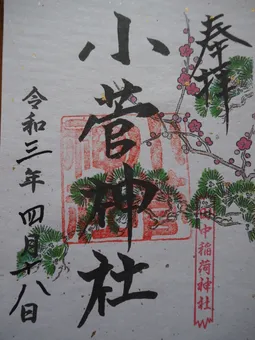 奉拝
小菅神社
田中稲荷神社
令和三年四月十八日